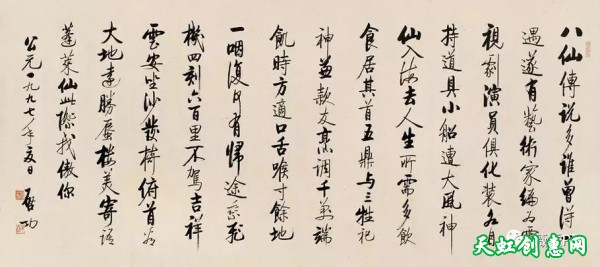 八仙傳说多谁曾得
遇遂有藝術家编为電
視劇演員俱化装各自
持道具小船遭大風神
仙入海去人生所需多飲
食居其首五鼎与三牲祀
神兼款友烹调千萬端
飢時方適口舌喉寸餘地
一咽復何有歸途乘飛
機四刻六百里不駕吉祥
雲安坐沙發椅俯首
大地遠勝蜃楼美寄语
蓬莱仙此際我傲你
公元一九九七年夏日 启功
天虹创意网